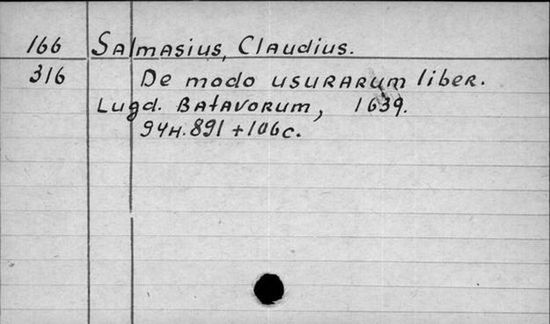 166 Salmasius, Claudius.
316 De modo usurarum liber.
Lugd. Batavorum, 1639.
94н.891+106c.